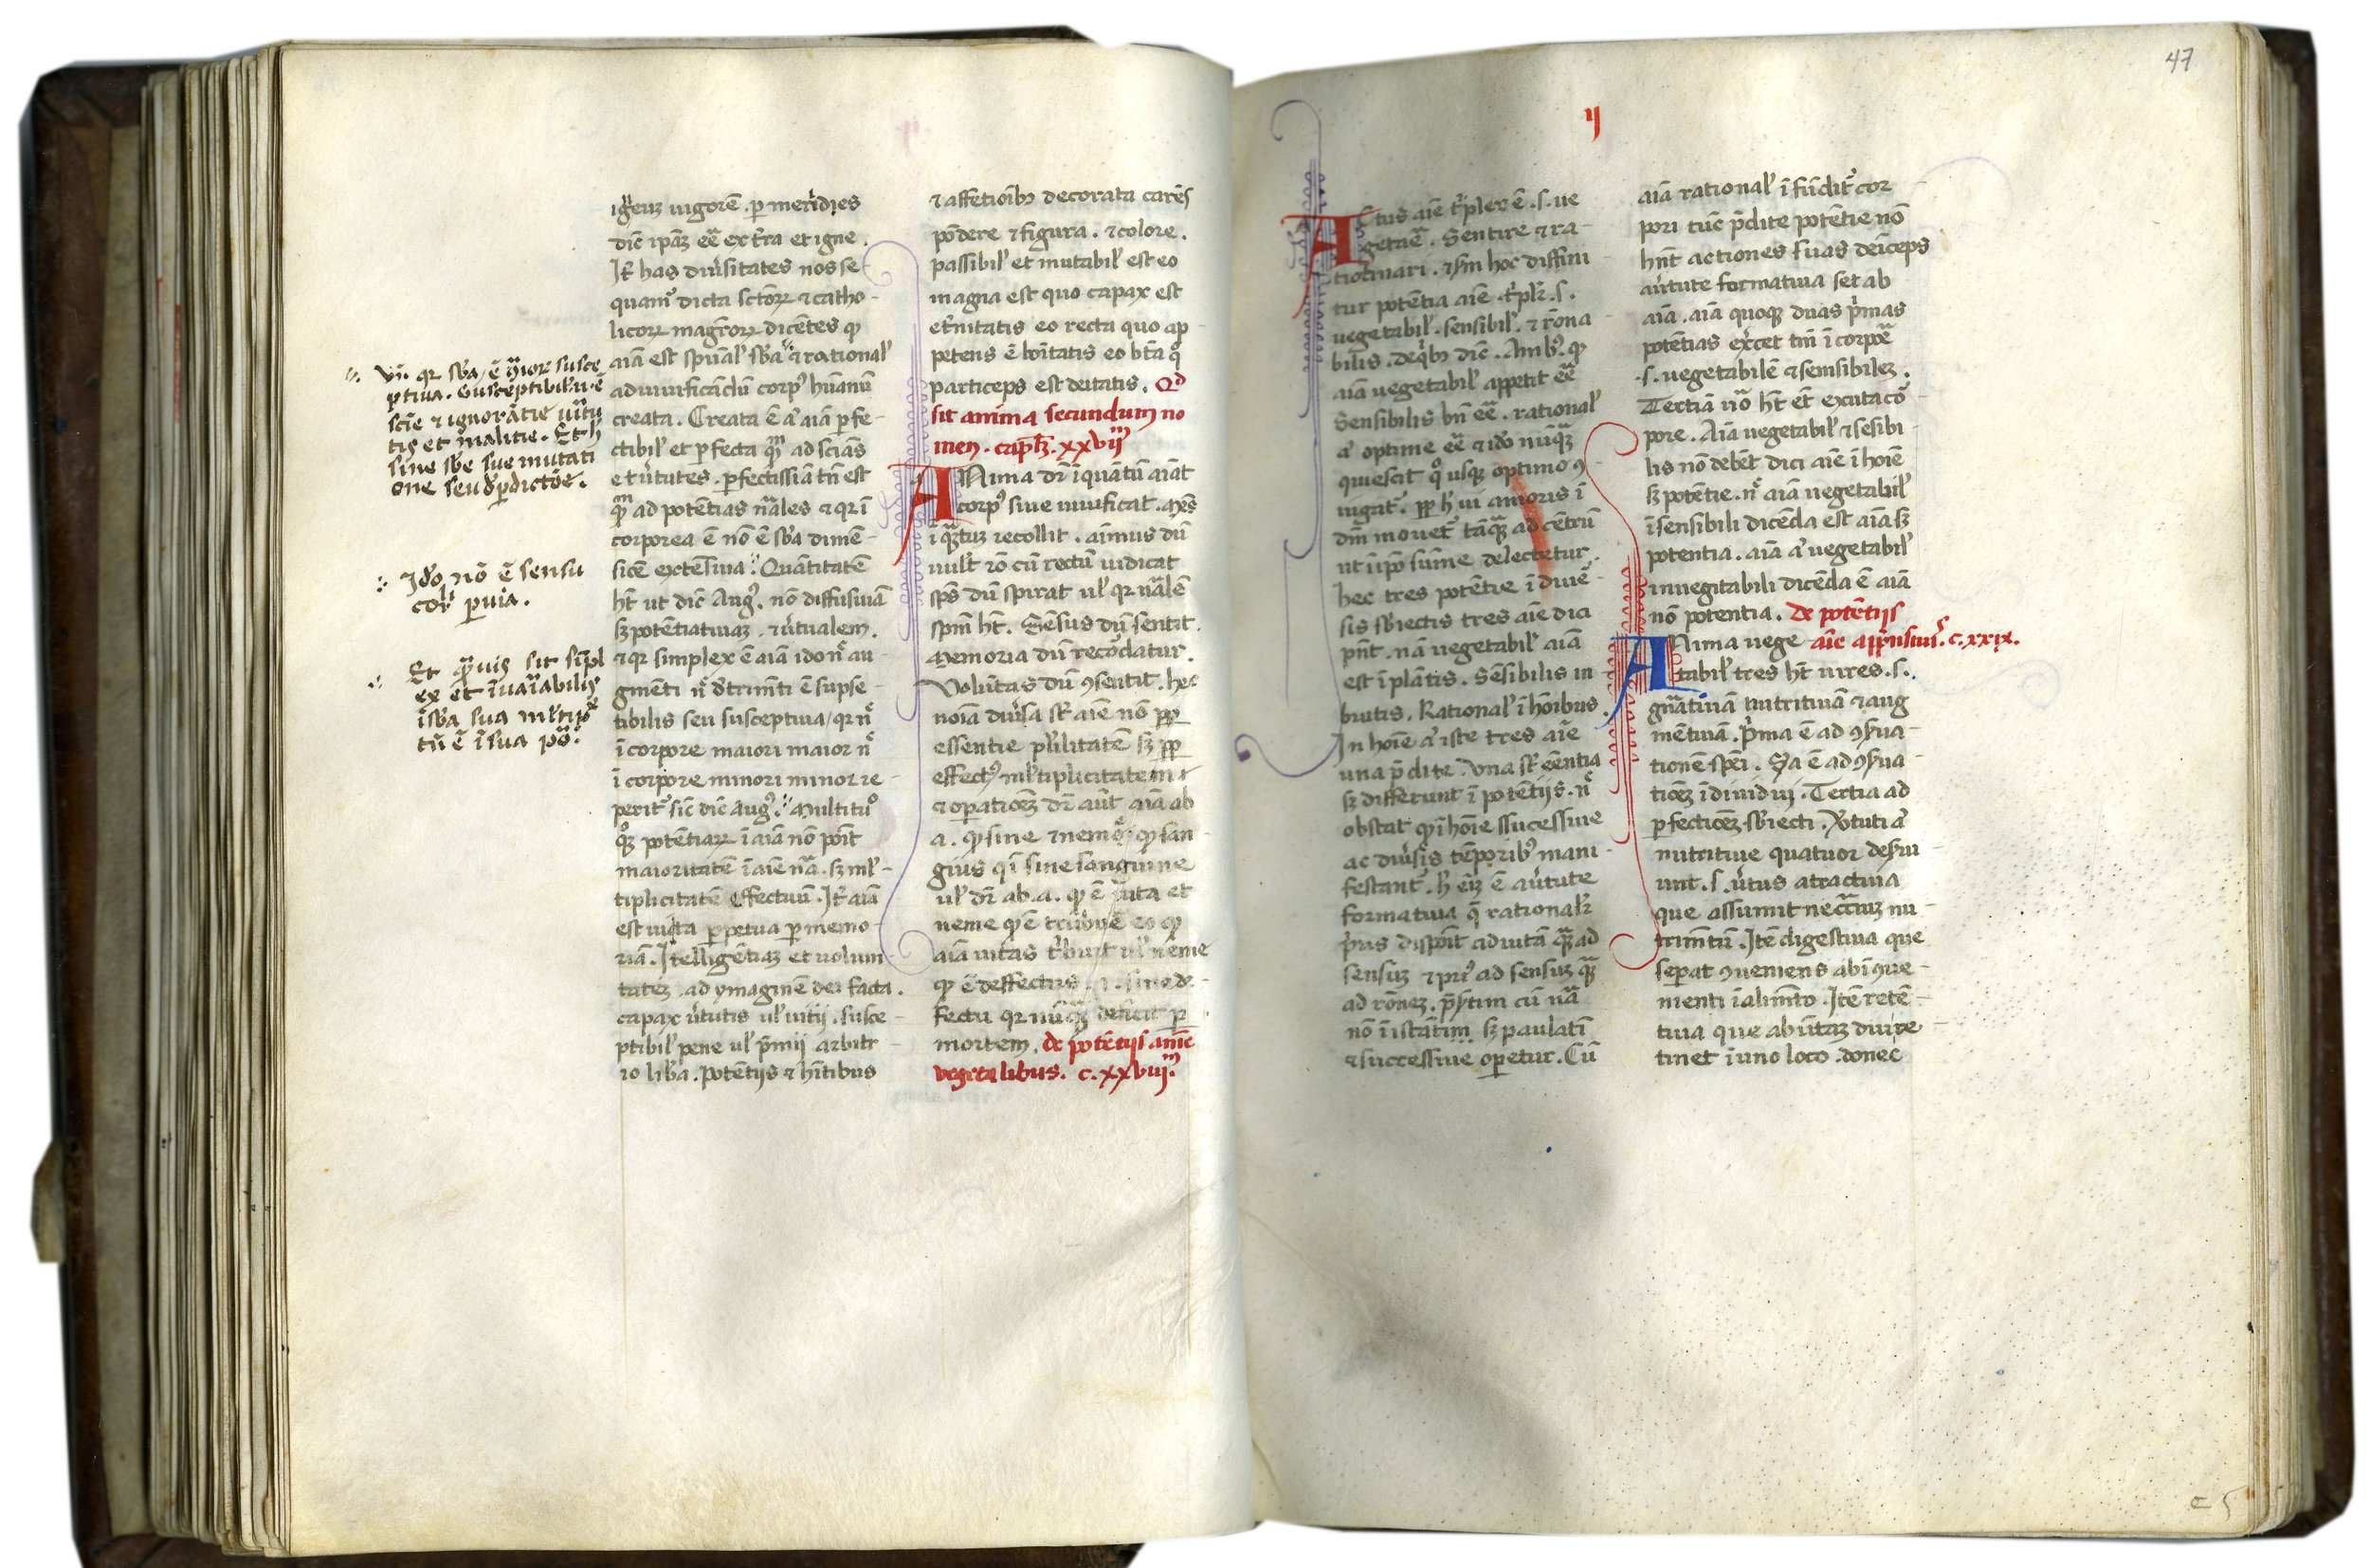 igneuz uigorē. p̱ meridies
dic̄ ip̄aꝫ eē̄ ex tr̄a et igne.
It̄ has diu'sitates nos se-
quam᷒ dicta sctōꝝ ⁊ catho-
licoꝝ mag̃roꝝ dicētes ꝙ
aīa est spūal' sb̄a ⁊ rational'
ad uiuificādū corpꝰ hūanū
creata. Creata ē aͭ aīa ꝑfe-
ctibil' et ꝑfecta qͫ ad sciās
et ůtutes. ꝑfectissīa tn̄ est
qͫ ad potētias nāles ⁊ qꝛ ī
corporea ē nō ē sb̄a dimē-
sīoē extēsiua. Quātitatē
ht̄ ut dic̄ Augꝰ. nō diffusiuā
sꝫ potētiatiuaꝫ. ⁊ ůtualem.
⁊ qꝛ simplex ē aīa ido nͨ au-
gmēti nͨ det̓mēti ē supse-
tibilis seu susceptiua, qꝛ nͨ
ī corpore maiori maior nͨ
ī corpore minori minor re-
perit᷒ sic̄ dic̄ Augꝰ. Multitu͞o
qͦꝫ potētiaꝝ ī aīa nō pōit
maioritatē ī aīe nā. sꝫ ml'-
tiplicitatē effectuū. It̄ aīa
est uita ꝑpetua ꝑ memo-
riā. Itelligētiaꝫ et uolun-
tateꝫ. ad ymaginē dei facta.
capax ůtutis ul' uitii. susce-
ptibil' pene ul' p̄mij arbitr-
io lib̄a. Potētijs ⁊ hītibus
Vn̄. qꝛ sb̄a ē
ptiua. Susceptibil' ē
scīe ⁊ ignorātie ůtu
tis et malitie. Et h̓
sine sb̄e sue mutati
one seu ꝑdictōe.
Ido nō ē sensu
corꝑ ꝑuia.
Et qͣuis sit sīpl
ex et īuaīabilis
ī sb̄a sua ml'tip͞
tn̄ ē ī sua pō.
⁊ affetioībꝫ decorata carēs
pōdere ⁊ figura. ⁊ colore.
passibil' et mutabil' est eo
magna est quo capax est
et̓nitatis eo recta quo ap-
petens ē bōitatis eo bt̄a qͦ
particeps est deitatis. Qd
sit anima secundum no
men. capl̄ꝫ. xxvijͫ
ANima dr̄ īquātū aīat
corpꝰ siue uiuificat. Mēs
ī qͣtuꝫ recollit. aīmus dū
uult rō cū rectū iudicat
sp̄s dū spirat ul' qꝛ nālē
spm̄ ht̄. Sēsus dū sentit.
Memoria dū recōdatur.
Volūtas dū ɔsentit. hec
noīa diu'sa st̄ aīe nō ꝓꝑ
essentie pl'ilitatē sꝫ ꝓꝑ
effectꝰ ml'tiplicitatem
⁊ oꝑatioeꝫ dr̄ aūt aīa ab
a. ꝙ sine ⁊ nemͣ, ꝙ san-
guis qͥ sine sanguine
ul' dr̄ ab. a. ꝙ ē uita et
neme ꝙ ē tribuē eo ꝙ
aīa uitas tͥbuit ul' neme
ꝙ ē deffectus. sine de-
fectu qꝛ nūqͣꝫ deficit ꝑ
mortem. de potētijs aīe
vegetalibus. c. xxviijͫ.
47
ij
ACtus aīe tͥplex ē. s. ue
getāe. Sentire ⁊ ra-
tiotinari. ⁊ sm̄ hoc diffini-
tur potētia aīe. tͥplꝛ. s.
uegetabil'. sensibil'. ⁊ rōna
bilis. de qͥbꝫ dic̄. Ambꝰ. ꝙ
aīa uegetabil' appetit eē̄
Sensibilis bn̄ eē̄. rational'
aͭ optime eē̄ ⁊ ido nūqͣꝫ
quiescit qͦ usqꝫ optimo ɔ
iugat᷒. ꝓꝑ h̓ ui amoris ī
dm̄ mouet᷒ tāqͣꝫ ad cētrū
ut ī ip̄o sūme delectetur.
hec tres potētie ī diuē-
sis sb̄iectis tres aīe dici
pn̄t. nā uegetabil' aīa
est ī plātis. Sēsibilis in
brutis. Rational' ī hoībus.
In hoīe aͭ iste tres aīe
una p̄dite. Vna st̄ eēntia
sꝫ differunt ī potētijs. nͨ
obstat ꝙ ī hoīe ssucessiue
ac diu'sis tēporibꝰ mani-
festant᷒. h̓ eīꝫ ē aůtute
formatiua q̄ rational'r
pͥus dispōit ad uitā qͣꝫ ad
sensuꝫ ⁊ priꝰ ad sensuꝫ qͣꝫ
ad rōneꝫ. p̄sertim cū nā
nō ī istātim sꝫ paulatī
⁊ successiue oꝑetur. Cū
aīa rational' īfūdit᷒ cor
pori tūc p̄dite potētie nō
hn̄t actiones suas deīceps
aůtute formatiua set ab
aīa. aīa quoqꝫ duas pͥmas
potētias ex̓cet tm̄ ī corpoē
.s. uegetabilē ⁊ sensibileꝫ.
Tertiā ůo ht̄ et̄ excutacō
pore. Aīa uegetabil' ⁊ sēsibi
lis nō debēt dici aīe ī hoīe
sꝫ potētie. nͨ aīa uegetabil'
ī sensibili dicēda est aīa sꝫ
potentia. aīa aͭ uegetabil'
in uegitabili dicēda ē aīa
nō potentia. De potētijs
ANima uege aīe appn̄siuis. c. xxix.
tabil' tres ht̄ uires. s.
gn̄atiuā nutritiuā ⁊ aug
mētiuā. pͥma ē ad ɔsua-
tionē spēi. Sͣa ē ad ɔsua-
tioeꝫ īdiuidui. Tertia ad
ꝑfectioeꝫ sb̄iecti. Vͥtuti aͭ
nutritiue quatuor desui-
unt. s. ůtus atractiua
que assumit neccāiuꝫ nu-
trimētū. Itē digestiua que
seꝑat ɔueniens ab īɔue-
nienti ī alimēto. Itē retē-
tiua que ab ūtaꝫ duire
tinet ī uno loco. donec
e 5